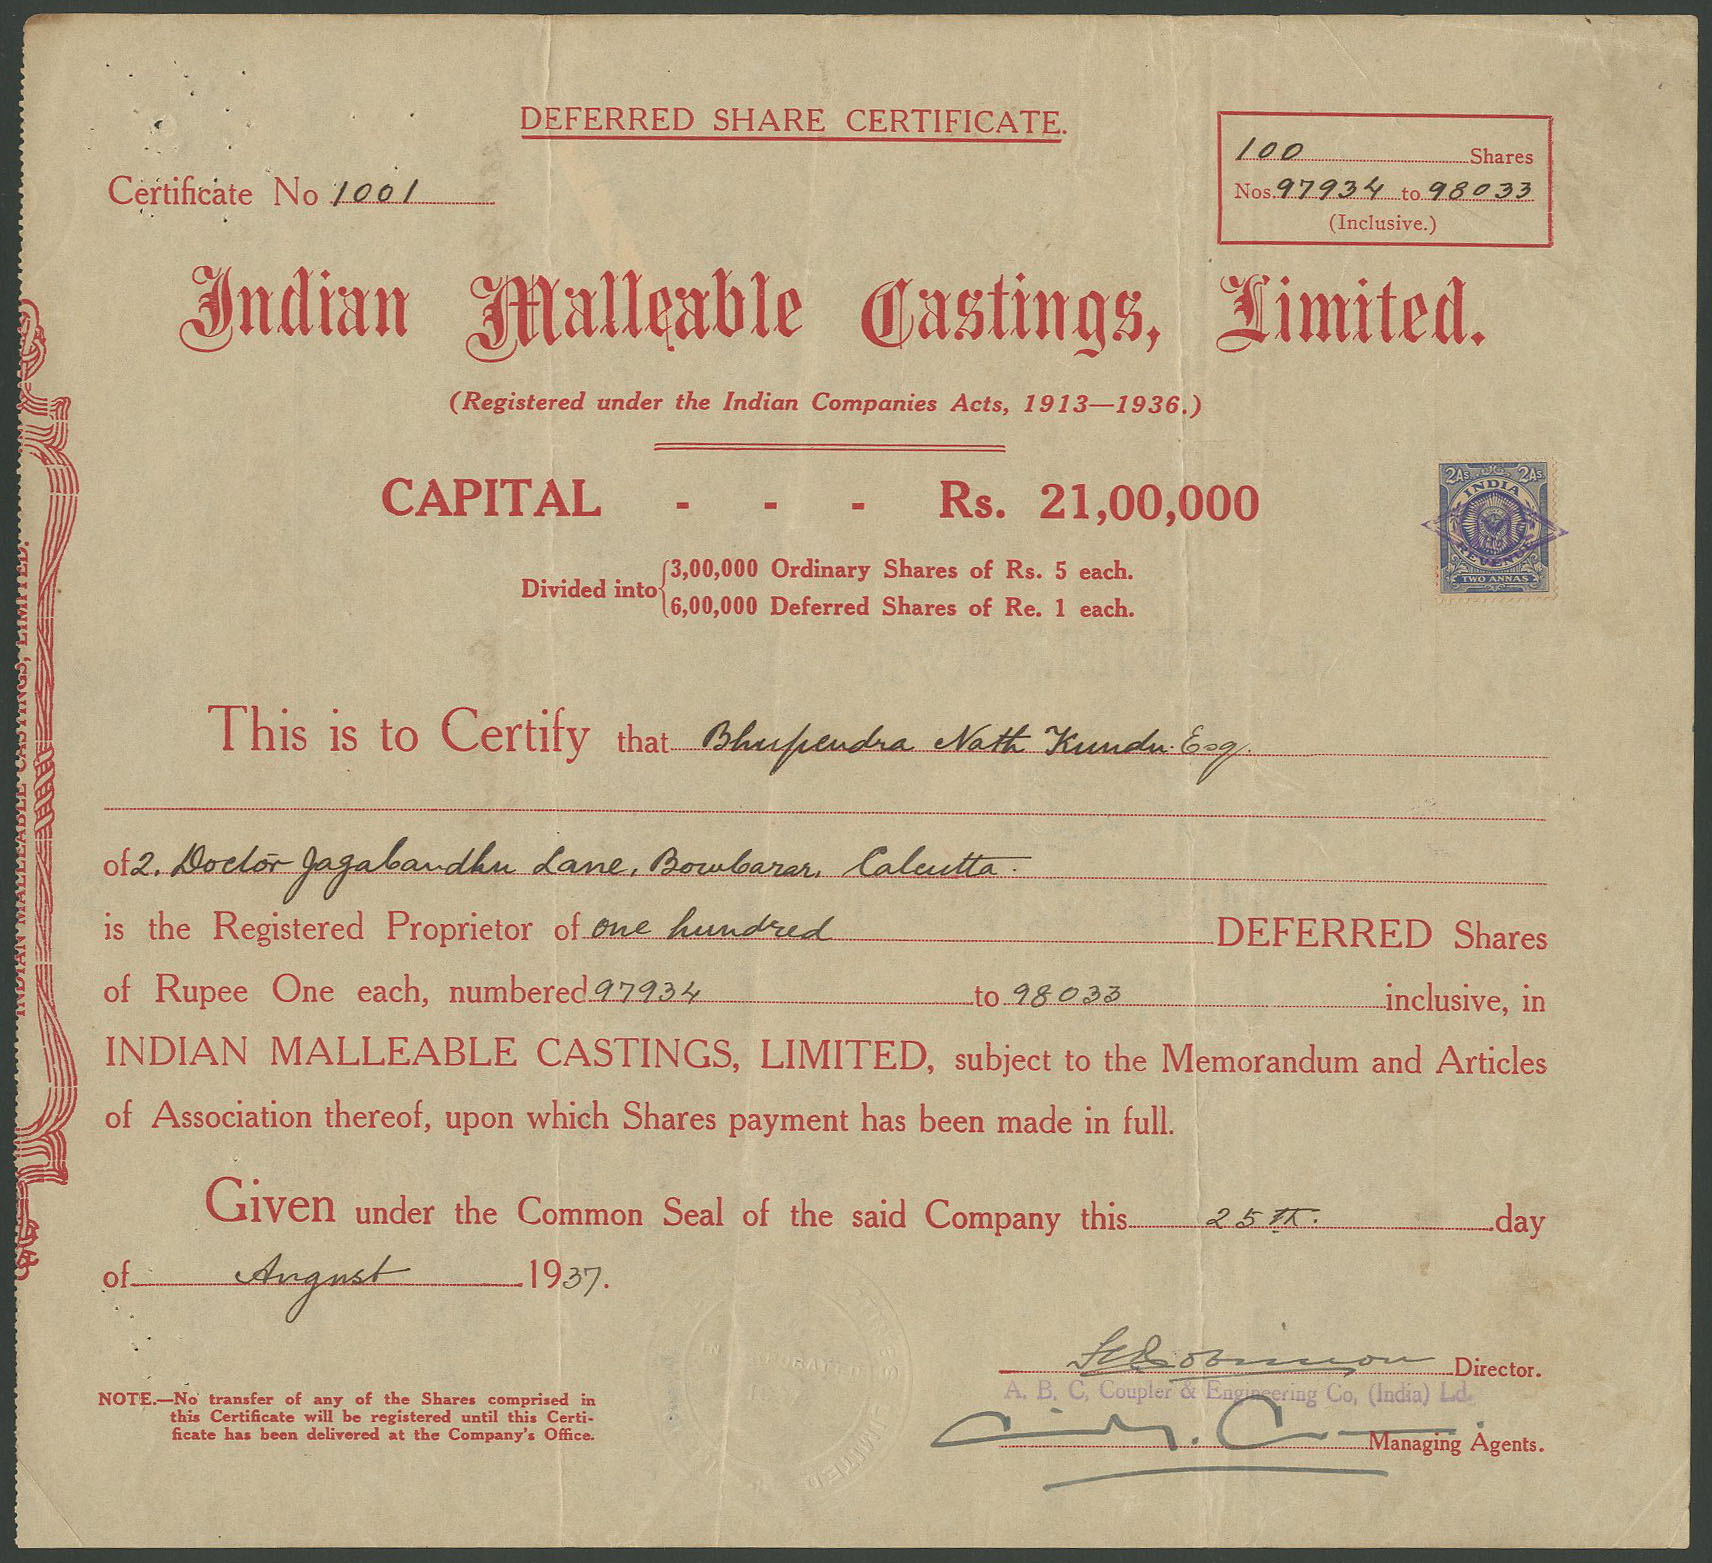 DEFERRED SHARE CERTIFICATE.
100 Shares
Certificate No 1001
Nos. 97934 to 98033
(Inclusive.)
Indian Malleable Castings, Limited.
(Registered under the Indian Companies Acts, 1913—1936.)
CAPITAL - - - Rs. 21,00,000
2As. 2As.
INDIA
REVENUE
TWO ANNAS
Divided into
3,00,000 Ordinary Shares of Rs. 5 each.
6,00,000 Deferred Shares of Re. 1 each.
This is to Certify that Bhupendra Nath Kundu Esq.
of 2. Doctor Jagabandhu Lane, Bowbazar, Calcutta.
is the Registered Proprietor of one hundred DEFERRED Shares
of Rupee One each, numbered 97934 to 98033 inclusive, in
INDIAN MALLEABLE CASTINGS, LIMITED, subject to the Memorandum and Articles
of Association thereof, upon which Shares payment has been made in full.
Given under the Common Seal of the said Company this 25th. day
of August 1937.
Director.
A. B. C. Coupler & Engineering Co, (India) Ld.
Managing Agents.
NOTE.—No transfer of any of the Shares comprised in
this Certificate will be registered until this Certi-
ficate has been delivered at the Company's Office.
INDIAN MALLEABLE CASTINGS, LIMITED.
INCORPORATED
LIMITED